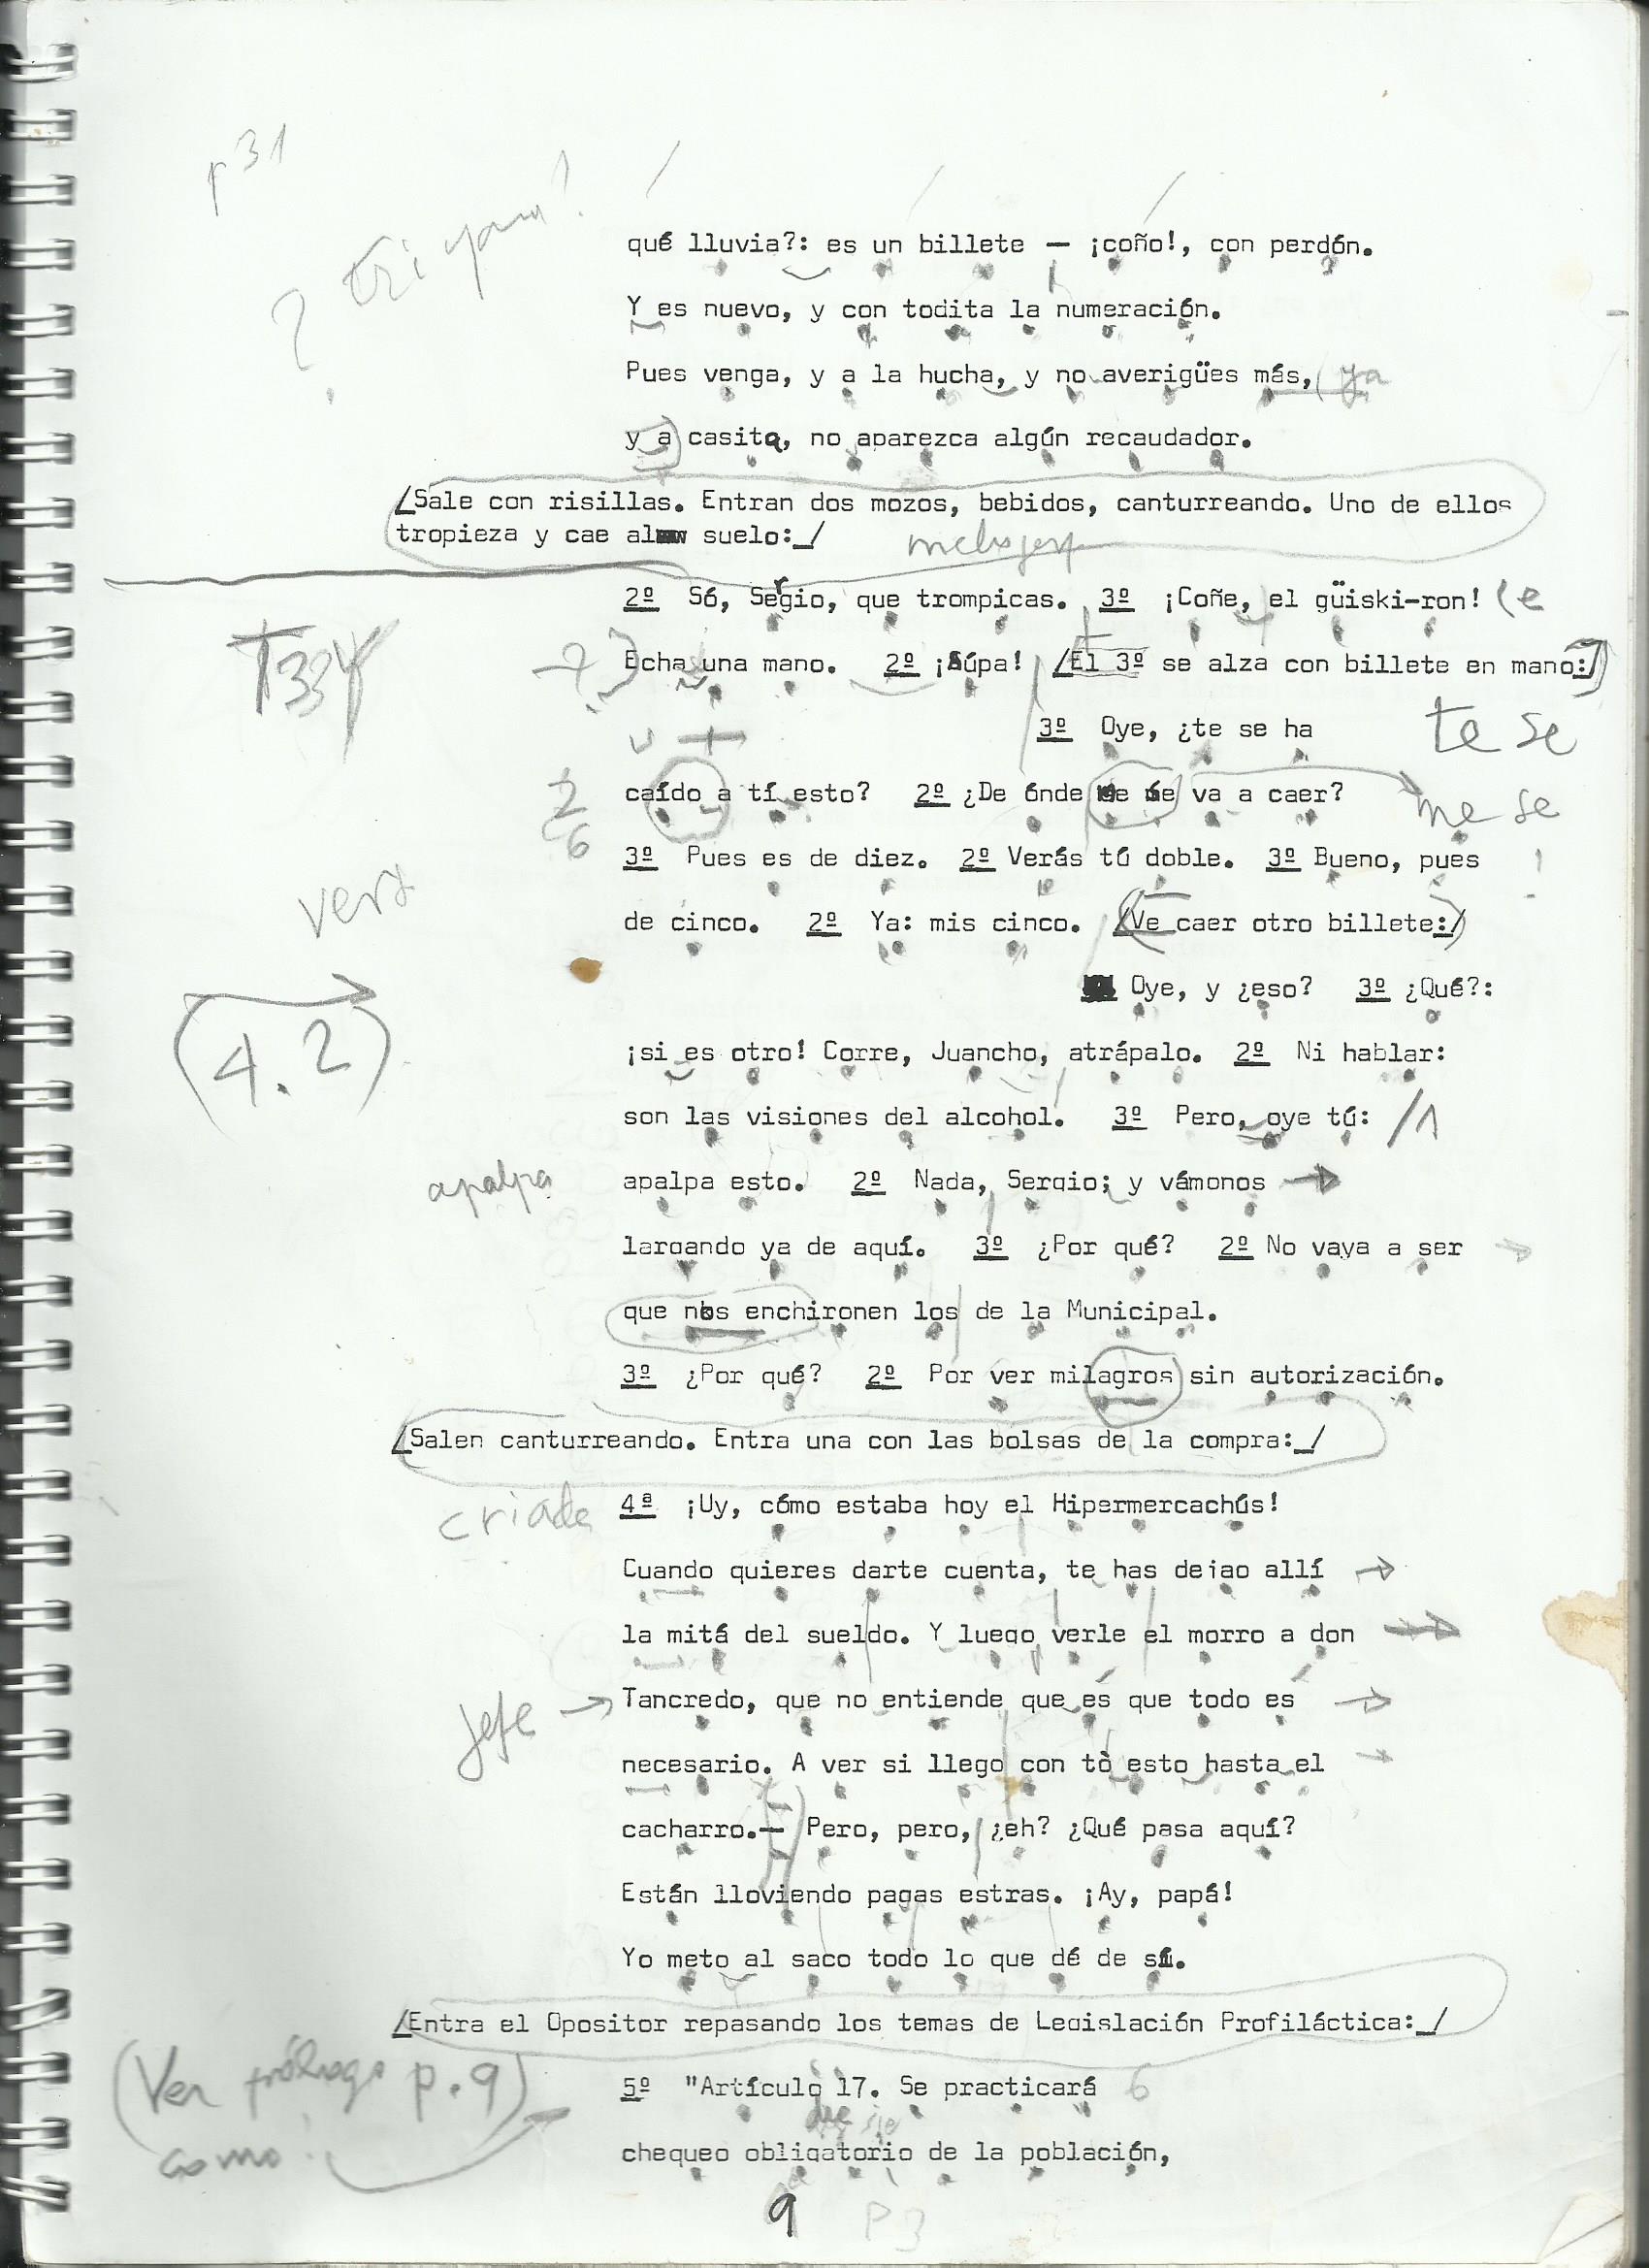 p 31
?
qué lluvia?: es un billete — ¡coño!, con perdón.
Y es nuevo, y con todita la numeración.
Pues venga, y a la hucha, y no averigües más, ya
y a casita, no aparezca algún recaudador.
/Sale con risillas. Entran dos mozos, bebidos, canturreando. Uno de ellos
tropieza y cae al suelo:_/
2º Só, Sergio, que trompicas. 3º ¡Coñe, el güiski-ron! (e
T334
Echa una mano. 2º ¡Aúpa! /El 3º se alza con billete en mano:/
3º Oye, ¿te se ha te se
caído a tí esto? 2º ¿De ónde me se va a caer? me se
3º Pues es de diez. 2º Verás tú doble. 3º Bueno, pues
de cinco. 2º Ya: mis cinco. /Ve caer otro billete:/
Oye, y ¿eso? 3º ¿Qué?:
(4.2)
¡si es otro! Corre, Juancho, atrápalo. 2º Ni hablar:
son las visiones del alcohol. 3º Pero, oye tú:
apalpa
apalpa esto. 2º Nada, Sergio; y vámonos
largando ya de aquí. 3º ¿Por qué? 2º No vaya a ser
que nos enchironen los de la Municipal.
3º ¿Por qué? 2º Por ver milagros sin autorización.
/Salen canturreando. Entra una con las bolsas de la compra:_/
criada
4ª ¡Uy, cómo estaba hoy el Hipermercachús!
Cuando quieres darte cuenta, te has dejao allí
la mitá del sueldo. Y luego verle el morro a don
jefe → Tancredo, que no entiende que és que todo es
necesario. A ver si llego con tò esto hasta el
cacharro.— Pero, pero, ¿eh? ¿Qué pasa aquí?
Están lloviendo pagas estras. ¡Ay, papá!
Yo meto al saco todo lo que dé de sí.
/Entra el Opositor repasando los temas de Legislación Profiláctica:_/
(Ver prólogo p. 9)
como!
5º "Artículo 17. Se practicará 6
chequeo obligatorio de la población,
9
P3